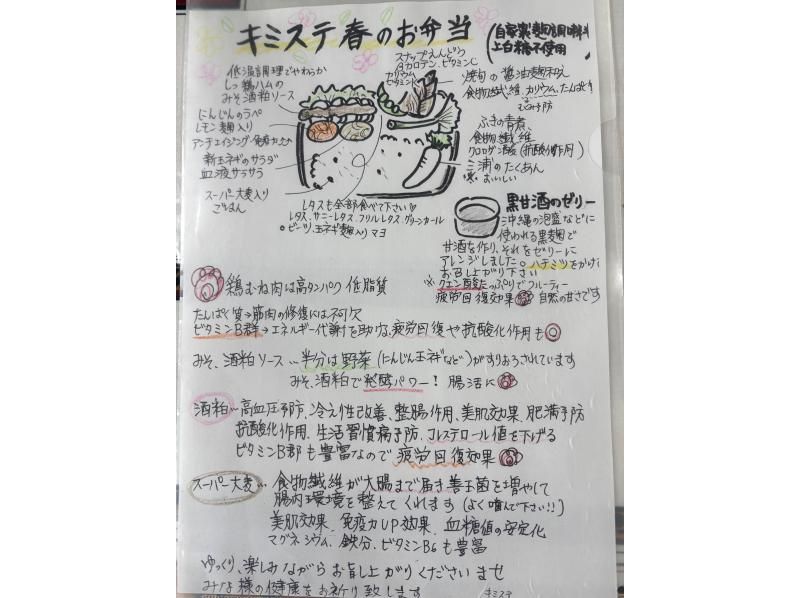 キミステ春のお弁当
(自家製麹調味料
上白糖不使用)
スナップえんどう
βカロテン、ビタミンC
カリウム
ビタミンK
低温調理でやわらか
しっ鶏ハムの
みそ酒粕ソース
にんじんのラペ
レモン麹入り
アンチエイジング・免疫力
新玉ネギのサラダ
血液サラサラ
スーパー大麦入り
ごはん
の醤油麹和え
食物繊維、カリウム、たんぱく
むくみ予防
ふきの青煮
食物繊維
クロロゲン酸(抗酸化作用)
三浦のたくあん
おいしい
レタスも全部食べて下さい
レタス、サニーレタス、フリルレタス、グリーンカール
ビーツ、玉ネギ麹入りマヨ
黒甘酒のゼリー
沖縄の泡盛などに
使われる黒麹で
甘酒を作り、それをゼリーに
アレンジしました。ハチミツをかけ
お召し上がり下さい
※クエン酸たっぷりでフルーティー
疲労回復効果 自然の甘さです
鶏むね肉は高タンパク 低脂質
たんぱく質→筋肉の修復には不可欠
ビタミンB群→エネルギー代謝を助け、疲労回復や抗酸化作用も◎
みそ、酒粕ソース…半分は野菜(にんじん玉ネギなど)がすりおろされています
みそ、酒粕で発酵パワー!腸活に
酒粕…高血圧予防、冷え性改善、整腸作用、美肌効果、肥満予防
抗酸化作用、生活習慣病予防、コレステロール値を下げる
ビタミンB郡も豊富なので疲労回復効果
スーパー大麦…食物繊維が大腸まで届き善玉菌を増やして
腸内環境を整えてくれます(よく噛んで下さい!!)
美肌効果、免疫力UP効果、血糖値の安定化
マグネシウム、鉄分、ビタミンB6も豊富
ゆっくり、楽しみながらお召し上がりくださいませ
みな様の健康をお祈り致します キミステ